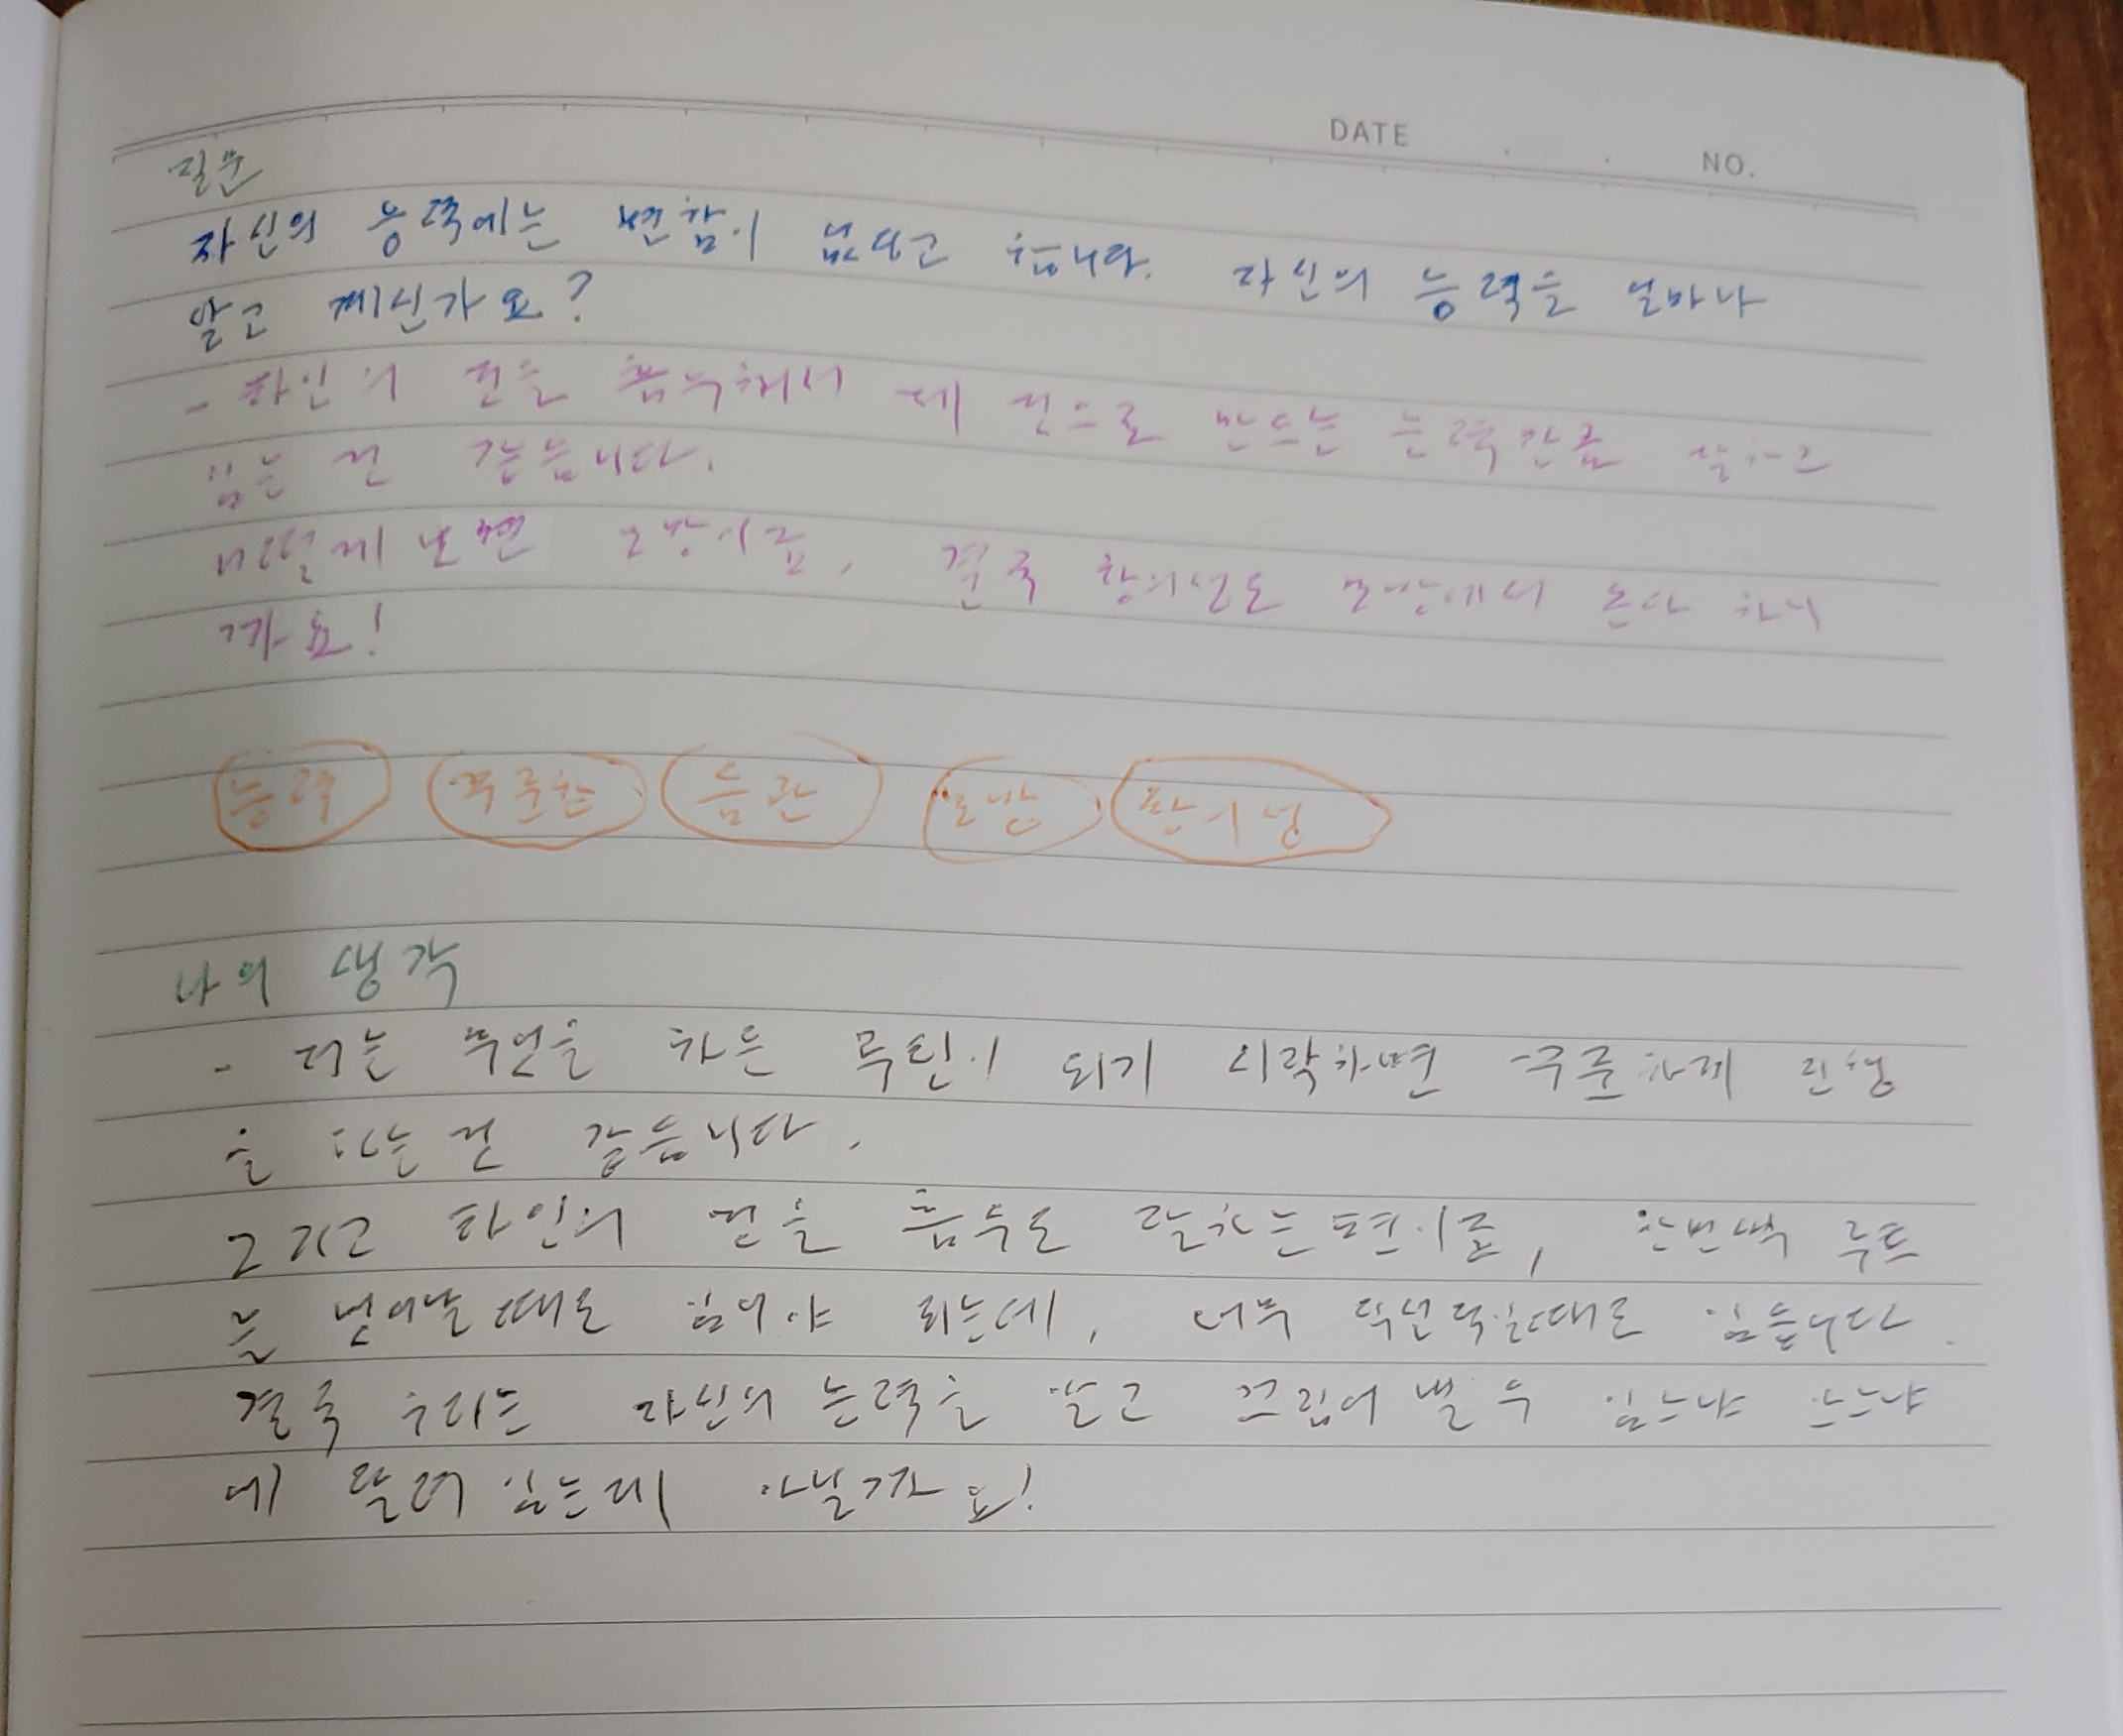 DATE . . NO.
질문
자신의 능력에는 변함이 없다고 합니다. 자신의 능력을 얼마나
알고 계신가요?
- 타인의 것을 흡수해서 제 것으로 만드는 능력만큼 잘하고
있는 것 같습니다.
어떻게 보면 모방이죠, 결국 창의성도 모방에서 온다 하니
까요!
능력 꾸준함 습관 모방 창의성
나의 생각
- 저는 무언을 하든 루틴이 되기 시작하면 꾸준하게 진행
을 하는 것 같습니다.
그리고 타인의 것을 흡수도 잘하는편이죠, 한번씩 루트
를 벗어날때도 있어야 되는데, 너무 할때도 있습니다.
결국 우리는 자신의 능력을 알고 끄집어 낼 수 있느냐 없느냐
에 달려 있는데 아닐까요!